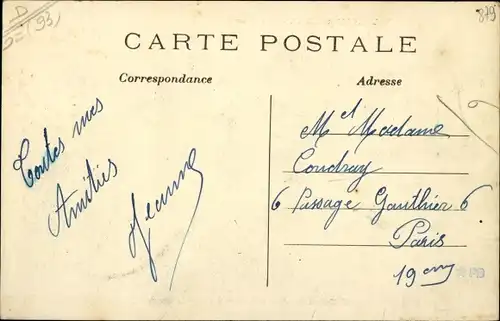 D
(93)
879
CARTE POSTALE
Correspondance
Adresse
Toutes mes
Amitiés
Jeanne
Mr et Madame
Coudray
6 Passage Gauthier 6
Paris
19em